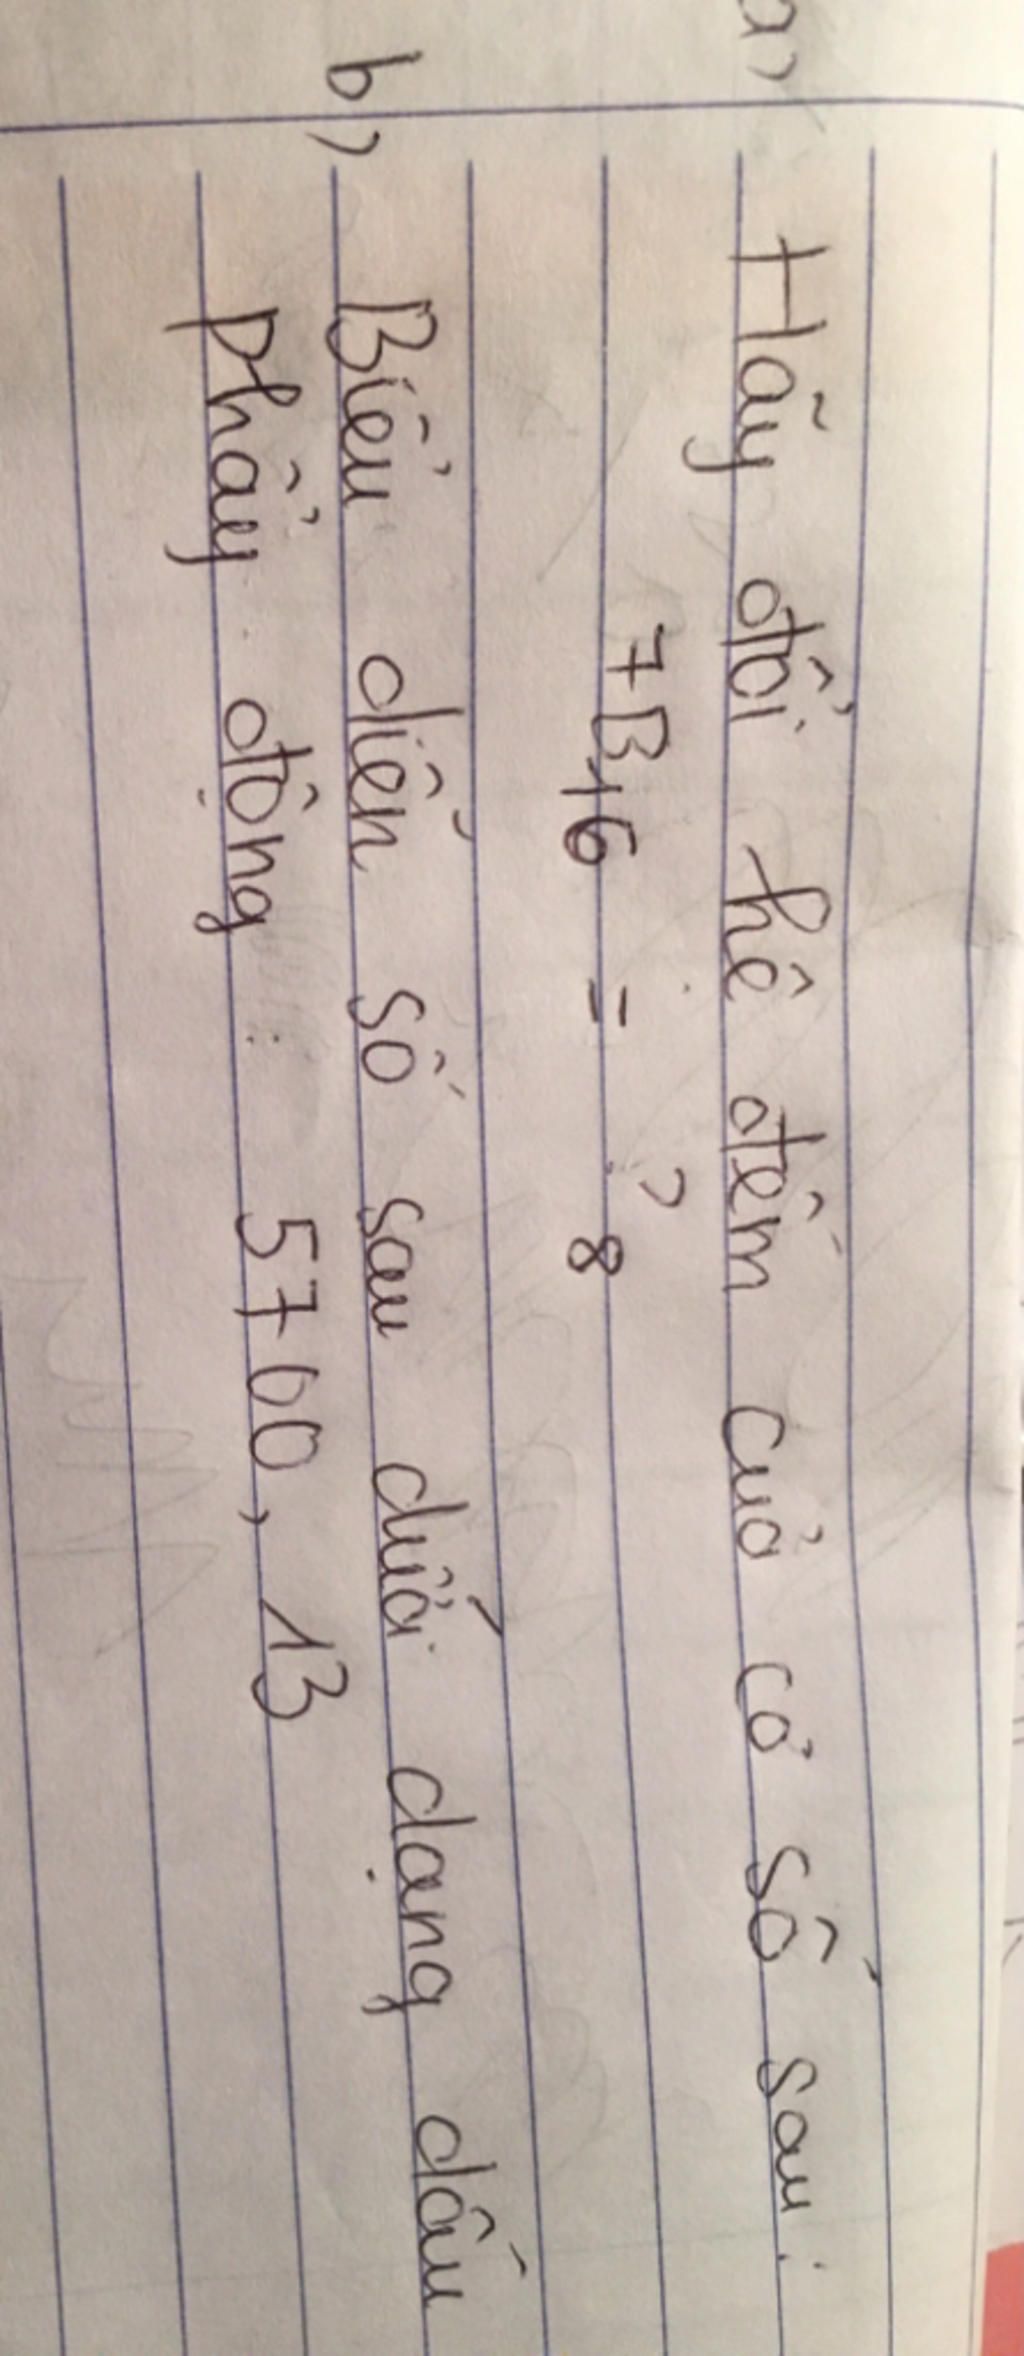 a, Hãy đổi hê đếm của cơ số sau:
7B₁₆ = ?₈
b, Biểu diễn số sau dưới dạng dấu
phẩy động : 5760,13